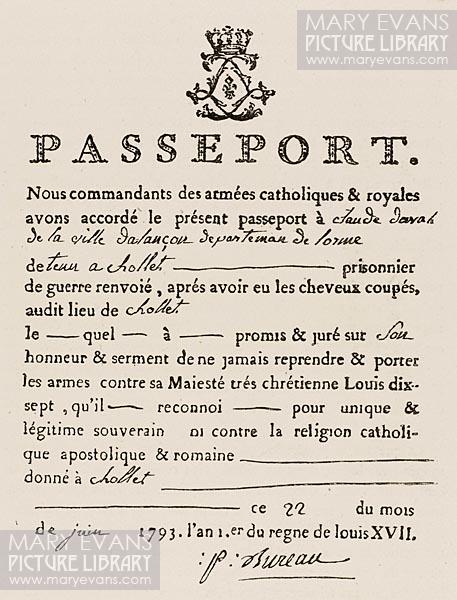 MARY EVANS
PICTURE LIBRARY
www.maryevans.com
PASSEPORT.
Nous commandants des armées catholiques & royales
avons accordé le présent passeport à claude
de la ville dalançon departeman de lorne
detenu a chollet prisonnier
de guerre renvoié, aprés avoir eu les cheveux coupés,
audit lieu de chollet
le — quel — à — promis & juré sur son
honneur & serment de ne jamais reprendre & porter
les armes contre sa Maiesté trés chrétienne Louis dix-
sept, qu'il — reconnoi — pour unique &
légitime souverain ni contre la religion catholi-
que apostolique & romaine
donné à chollet
ce 22 du mois
de juin 1793. l'an 1.er du regne de louis XVII.
:p: Bureau
MARY EVANS
PICTURE LIBRARY
www.maryevans.com